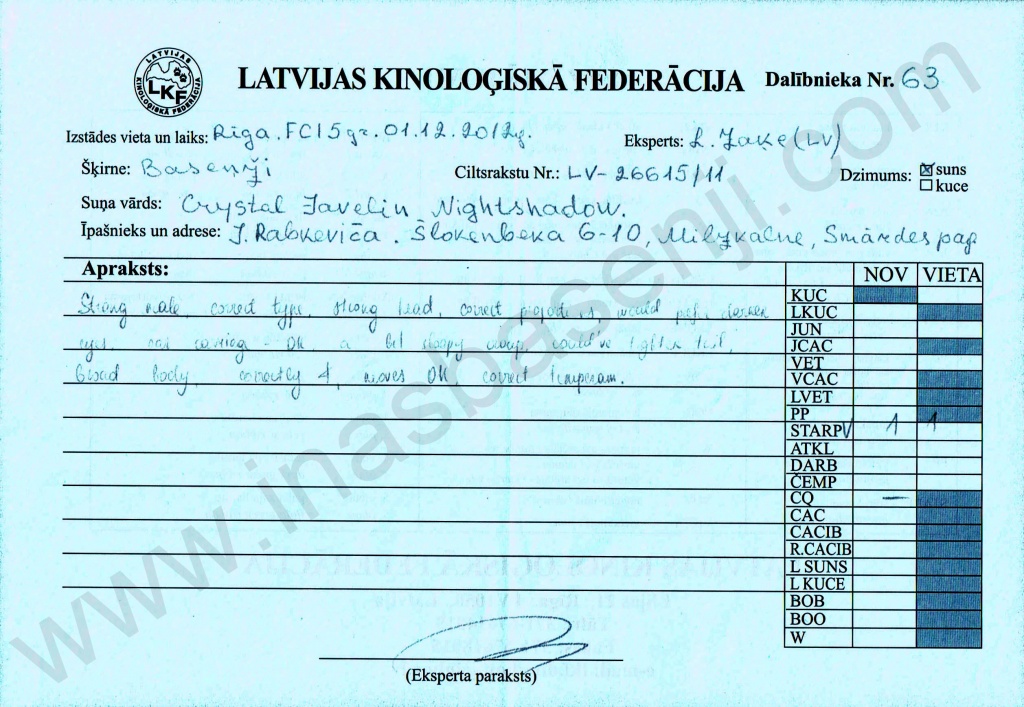 LATVIJAS KINOLOĢISKĀ FEDERĀCIJA
LKF
LATVIJAS KINOLOĢISKĀ FEDERĀCIJA Dalībnieka Nr. 63
Izstādes vieta un laiks: Rīga. FCI 5gr. 01.12.2012g. Eksperts: L. Jaķe (LV)
Šķirne: Basenži Ciltsrakstu Nr.: LV-26615/11 Dzimums: ☒ suns
☐ kuce
Suņa vārds: Crystal Javelin Nightshadow.
Īpašnieks un adrese: J. Rabkeviča. Šlokenbeka 6-10, Milzkalne, Smārdes pag
Apraksts: NOV VIETA
Strong male, correct type, strong head, correct would darker
eyes, OK, a bit croup, could've tighter tail,
broad body, correctly moves OK correct temperam.
KUC
LKUC
JUN
JCAC
VET
VCAC
LVET
PP
STARP V 1 1
ATKL
DARB
ČEMP
CQ —
CAC
CACIB
R.CACIB
L SUNS
L KUCE
BOB
BOO
W
(Eksperta paraksts)
www.inasbasenji.com